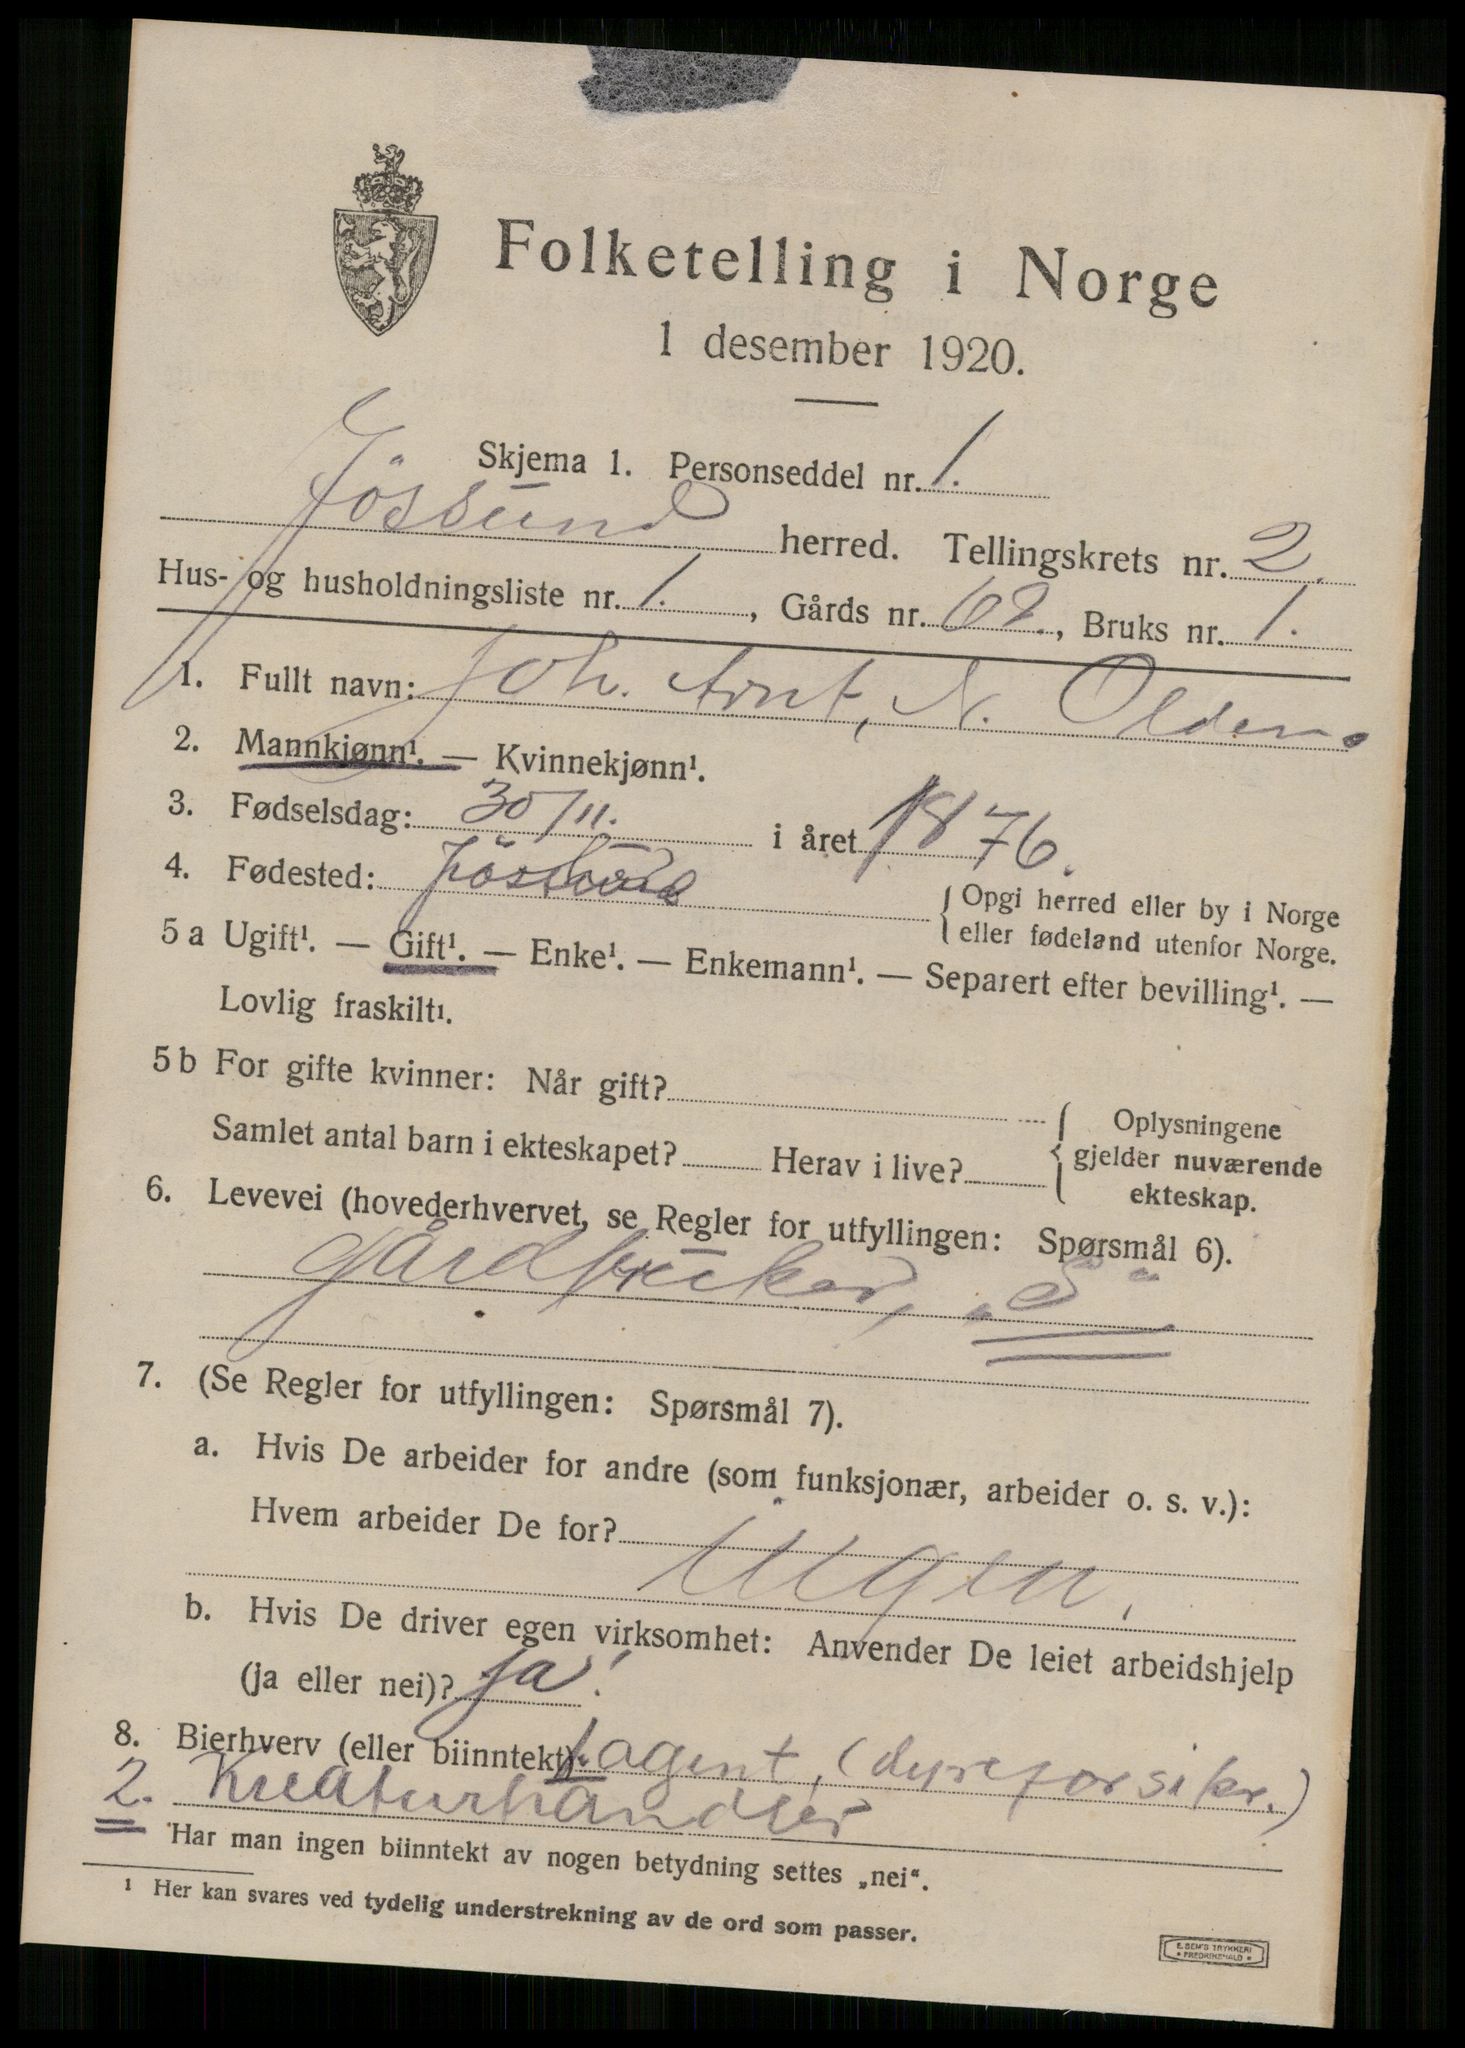 Folketelling i Norge
1 desember 1920.
Skjema 1. Personseddel nr. 1.
Jössund herred. Tellingskrets nr. 2.
Hus- og husholdningsliste nr. 1., Gårds nr. 62., Bruks nr. 1.
1. Fullt navn: Joh. Arnt, N. Olden.
2. Mannkjønn¹. — Kvinnekjønn¹.
3. Fødselsdag: 30/11. i året 1876.
4. Fødested: Jössund { Opgi herred eller by i Norge
eller fødeland utenfor Norge.
5 a Ugift¹. — Gift¹. — Enke¹. — Enkemann¹. — Separert efter bevilling¹. —
Lovlig fraskilt¹.
5 b For gifte kvinner: Når gift?
Samlet antal barn i ekteskapet? Herav i live?
{ Oplysningene
gjelder nuværende
ekteskap.
6. Levevei (hovederhvervet, se Regler for utfyllingen: Spørsmål 6).
Gårdbruker, „S“
7. (Se Regler for utfyllingen: Spørsmål 7).
a. Hvis De arbeider for andre (som funksjonær, arbeider o. s. v.):
Hvem arbeider De for?
Ingen.
b. Hvis De driver egen virksomhet: Anvender De leiet arbeidshjelp
(ja eller nei)? ja!
8. Bierhverv (eller biinntekt): 1 agent, (dyreforsikr.)
2. Kreaturhandler
Har man ingen biinntekt av nogen betydning settes „nei“.
¹ Her kan svares ved tydelig understrekning av de ord som passer.
E. SEM'S TRYKKERI
FREDRIKSHALD